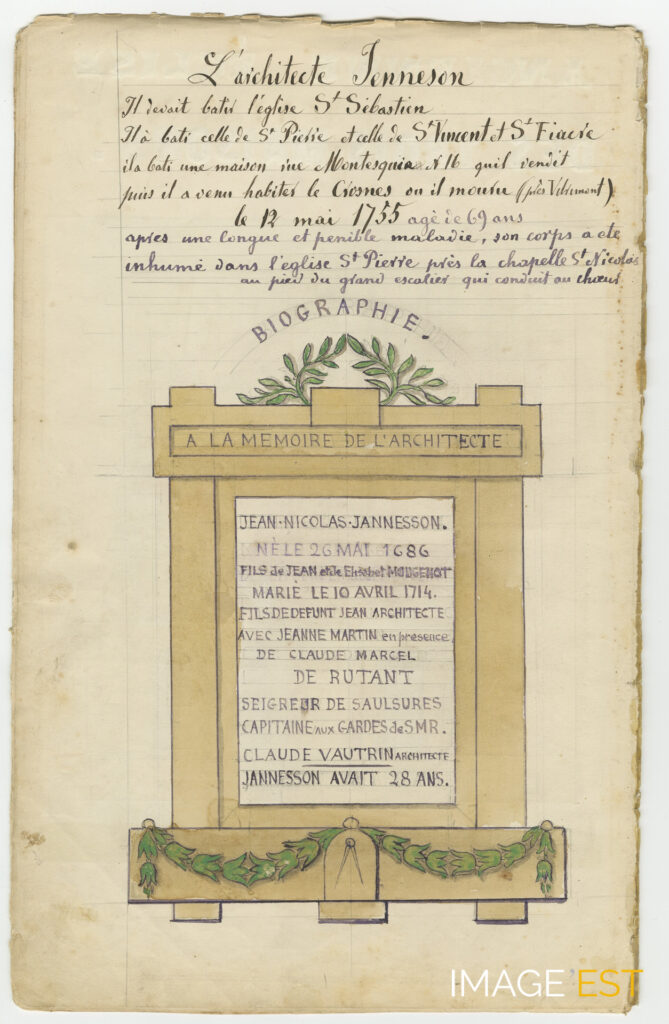 L'architecte Jenneson
Il devait batir l'église St Sébastien
Il à bati celle de St Pierre et celle de St Vincent et St Fiacre
il a bati une maison rue Montesquia N 16 quil vendit
puis il a venu habiter le Crosnes ou il mouru (près Vidrumont)
le 12 mai 1755 agè de 69 ans
apres une longue et penible maladie, son corps a ete
inhumé dans l'église St Pierre près la chapelle St Nicolas
au pied du grand escalier qui conduit au chœur
BIOGRAPHIE.
A LA MEMOIRE DE L'ARCHITECTE
JEAN·NICOLAS·JANNESSON.
NÈ LE 26 MAI 1686
FILS de JEAN et de Elisabet MOUGENOT
MARIÈ LE 10 AVRIL 1714.
FILS DE DEFUNT JEAN ARCHITECTE
AVEC JEANNE MARTIN en présence
DE CLAUDE MARCEL
DE RUTANT
SEIGREUR DE SAULSURES
CAPITAINE aux GARDES de S M R.
CLAUDE VAUTRIN ARCHITECTE
JANNESSON AVAIT 28 ANS.
IMAGE EST